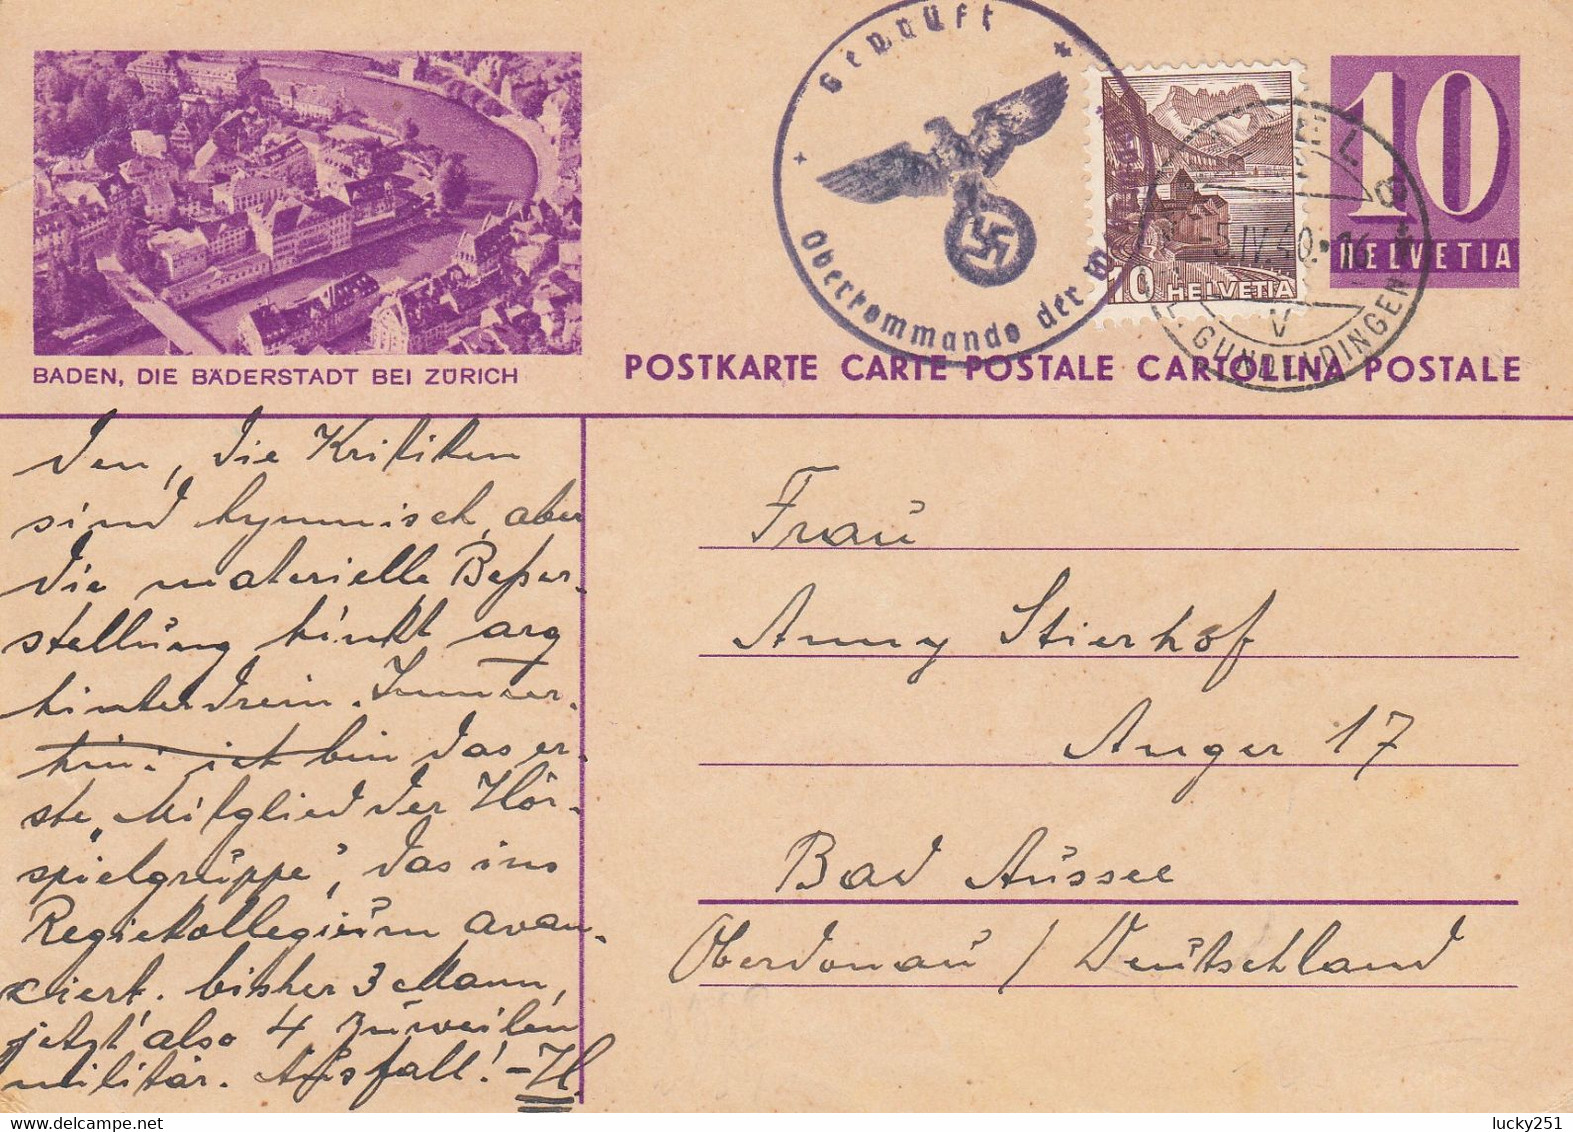 Geprüft
Oberkommando der
10
HELVETIA
10
HELVETIA
5.IV.40.-16
V
GUNDELDINGEN
BADEN, DIE BÄDERSTADT BEI ZÜRICH
POSTKARTE CARTE POSTALE CARTOLINA POSTALE
den, die Kritiken
sind hymnisch, aber
die materielle Besser-
stellung hinkt arg
hinterdrein. Immer-
hin: ich bin das er-
ste „Mitglied der Hör-
spielgruppe", das ins
Regiekollegium avan-
ciert. bisher 3 Mann,
jetzt also 4 zuweilen
militär. Ausfall! – H.
Frau
Anny Stierhof
Anger 17
Bad Aussee
Oberdonau / Deutschland
lucky251